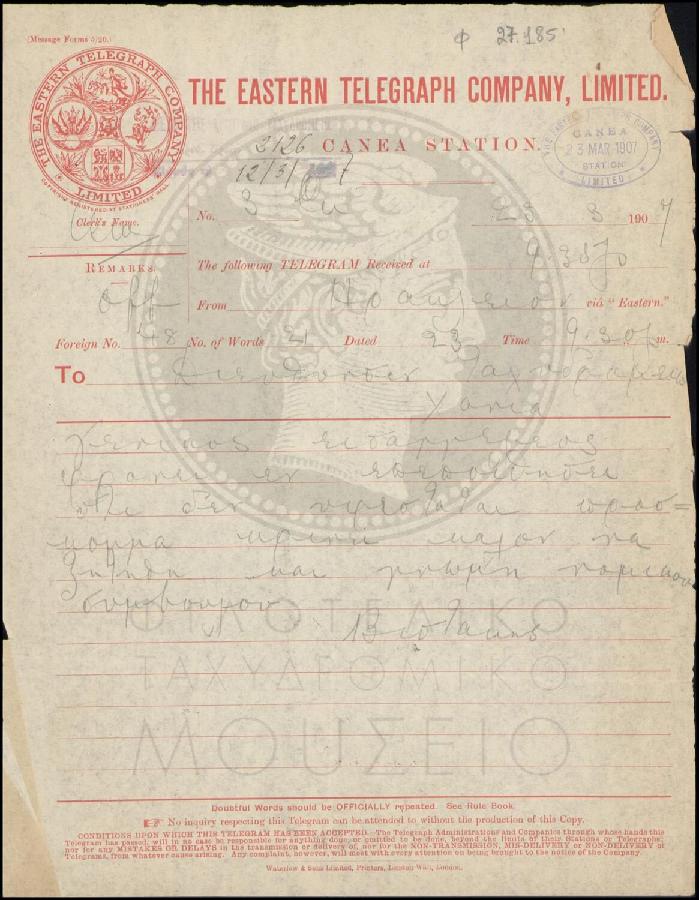 (Message Forms 5/20.)
Φ 27.185
THE EASTERN TELEGRAPH COMPANY
LIMITED
COPYRIGHT REGISTERED AT STATIONERS HALL
THE EASTERN TELEGRAPH COMPANY, LIMITED.
2126 CANEA STATION.
12/3/ 7
CANEA
23 MAR 1907
STATION
LIMITED
Clerk's Name.
No. 3 23 3 1907
REMARKS.
The following TELEGRAM Received at
off
From Ηρακλειον viâ "Eastern."
Foreign No. 48 No. of Words 21 Dated 23 Time 9.30 m.
To Διευθυντην Ταχυδρομειων
Χανια
Γενικος εισαγγελευς
φρονει εν πεποιθησει
οτι δεν υφισταται προσ=
κομμα κρινει καλον να
ζητηθη και γνωμη νομικου
συμβουλου
ΦΙΛΟΤΕΛΙΚΟ
ΤΑΧΥΔΡΟΜΙΚΟ
ΜΟΥΣΕΙΟ
Doubtful Words should be OFFICIALLY repeated. See Rule Book.
No inquiry respecting this Telegram can be attended to without the production of this Copy.
CONDITIONS UPON WHICH THIS TELEGRAM HAS BEEN ACCEPTED.—The Telegraph Administrations and Companies through whose hands this
Telegram has passed, will in no case be responsible for anything done, or omitted to be done, beyond the limits of their Stations or Telegraphs;
nor for any MISTAKES OR DELAYS in the transmission or delivery of, nor for the NON-TRANSMISSION, MIS-DELIVERY or NON-DELIVERY of
Telegrams, from whatever cause arising. Any complaint, however, will meet with every attention on being brought to the notice of the Company.
Waterlow & Sons Limited, Printers, London Wall, London.